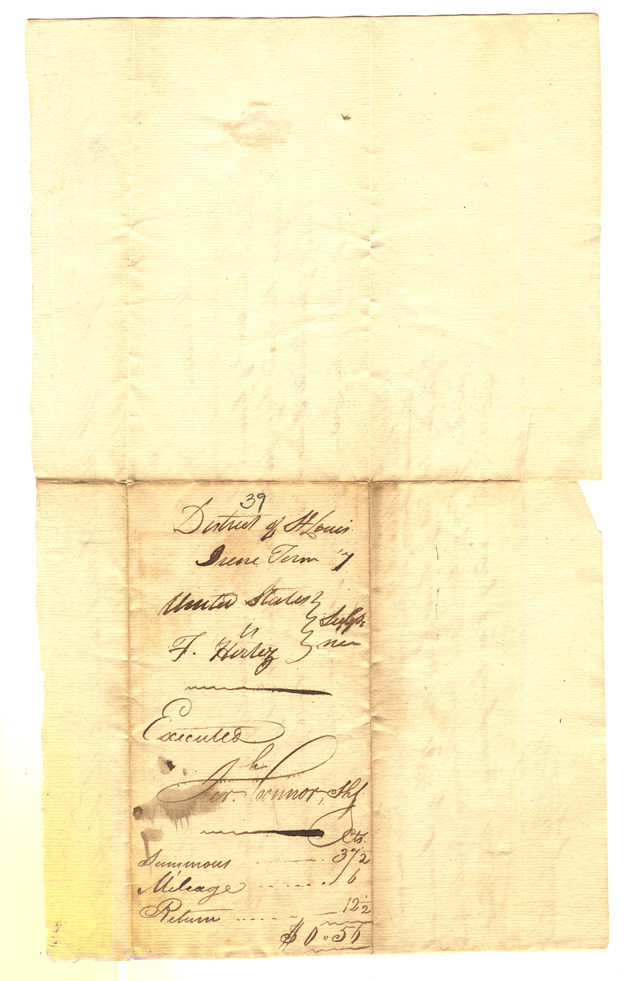 39
District of St Louis
June Term '7
United States
vs
F. Hortez
Executed
Jer.h Connor, Shf
Cts.
Summons ...... 37½
Mileage ...... 6
Return ...... 12½
$ 0 .. 56